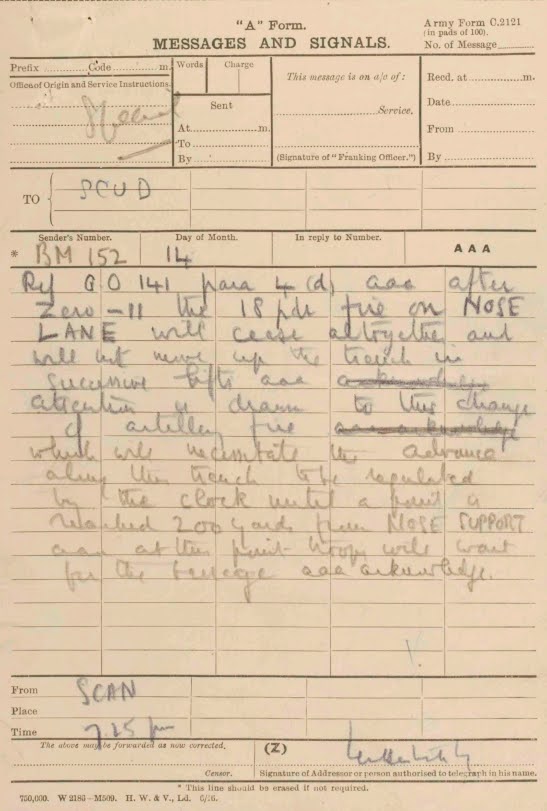 "A" Form.
MESSAGES AND SIGNALS.
Army Form C.2121
(in pads of 100).
No. of Message
Prefix Code m.
Office of Origin and Service Instructions
Words Charge
Sent
At m.
To
By
This message is on a/c of :
Service.
(Signature of "Franking Officer.")
Recd. at m.
Date
From
By
TO SCUD
Sender's Number. Day of Month. In reply to Number. AAA
* BM 152 14
Ref G.O 141 para 4 (d) aaa after
Zero -11 the 18 pdr fire on NOSE
LANE will cease altogether and
will not move up the trench in
successive lifts aaa acknowledge
attention is drawn to this change
of artillery fire aaa acknowledge
which will necessitate the advance
along the trench to be regulated
by the clock until a point is
reached 200 yards from NOSE SUPPORT
aaa at this point troops will wait
for the barrage aaa acknowledge.
From SCAN
Place
Time 7.25 pm
The above may be forwarded as now corrected. (Z)
Censor. Signature of Addressor or person authorised to telegraph in his name.
* This line should be erased if not required.
750,000. W 2186—M509. H. W. & V., Ld. 6/16.